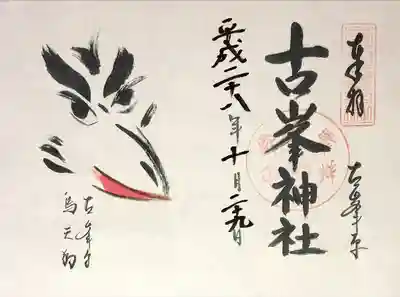 奉拝
古峯原
古峯神社
平成二十八年十月二十九日
古峯原
烏天狗